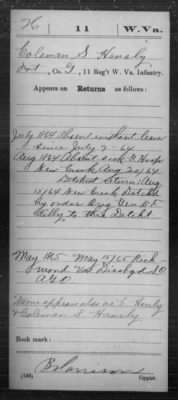 H | 11 | W. Va.
Coleman S Hansby
Pvt, Co. G, 11 Reg't W. Va. Infantry.
Appears on Returns as follows:
July 1864 Absent without leave
since July 2-64
Aug 1864 Absent sick G Hosp
New Creek Aug 20/64
Detchmt return Aug
15/64 New Creek Detcht
by order Brig Gen B F
Kelly to this Detcht
May 1865 May 15/65 Rich-
mond Va Dischgd S O
A G O
Name appears also as C. Hansby
& Coleman S Hansby
Book mark:
(546)
Copyist.